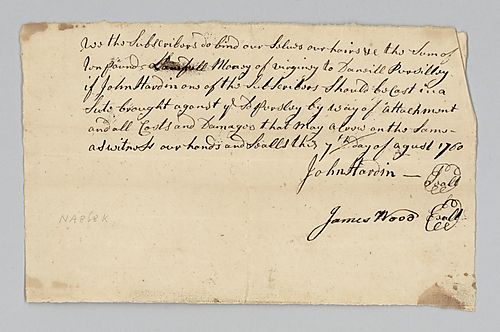 We the Subscribors do bind our Selves our hairs &c the Sum of
ten pound Money of virginey to Daniell
if John Hardin one of the Subscribers Should be Cast in a
Sute brought against ye by way of Attachment
and all Costs and Damages that May acrew on the Same
as witness our hands and sealls this 7th Day of agust 1760
John Hardin — Seald
James Wood Seald
NA868K